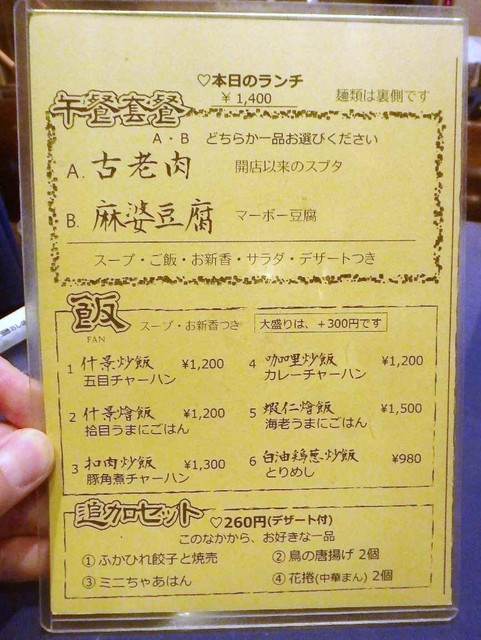 ♡本日のランチ
¥ 1,400
麺類は裏側です
午餐套餐
A・B どちらか一品お選びください
A. 古老肉 開店以来のスブタ
B. 麻婆豆腐 マーボー豆腐
スープ・ご飯・お新香・サラダ・デザートつき
飯
FAN
スープ・お新香つき 大盛りは、+300円です
1 什景炒飯 ¥1,200
五目チャーハン
2 什景燴飯 ¥1,200
拾目うまにごはん
3 扣肉炒飯 ¥1,300
豚角煮チャーハン
4 咖哩炒飯 ¥1,200
カレーチャーハン
5 蝦仁燴飯 ¥1,500
海老うまにごはん
6 白油鶏葱炒飯 ¥980
とりめし
追加セット ♡260円(デザート付)
このなかから、お好きな一品
①ふかひれ餃子と焼売 ②鳥の唐揚げ 2個
③ミニちゃあはん ④花捲(中華まん) 2個